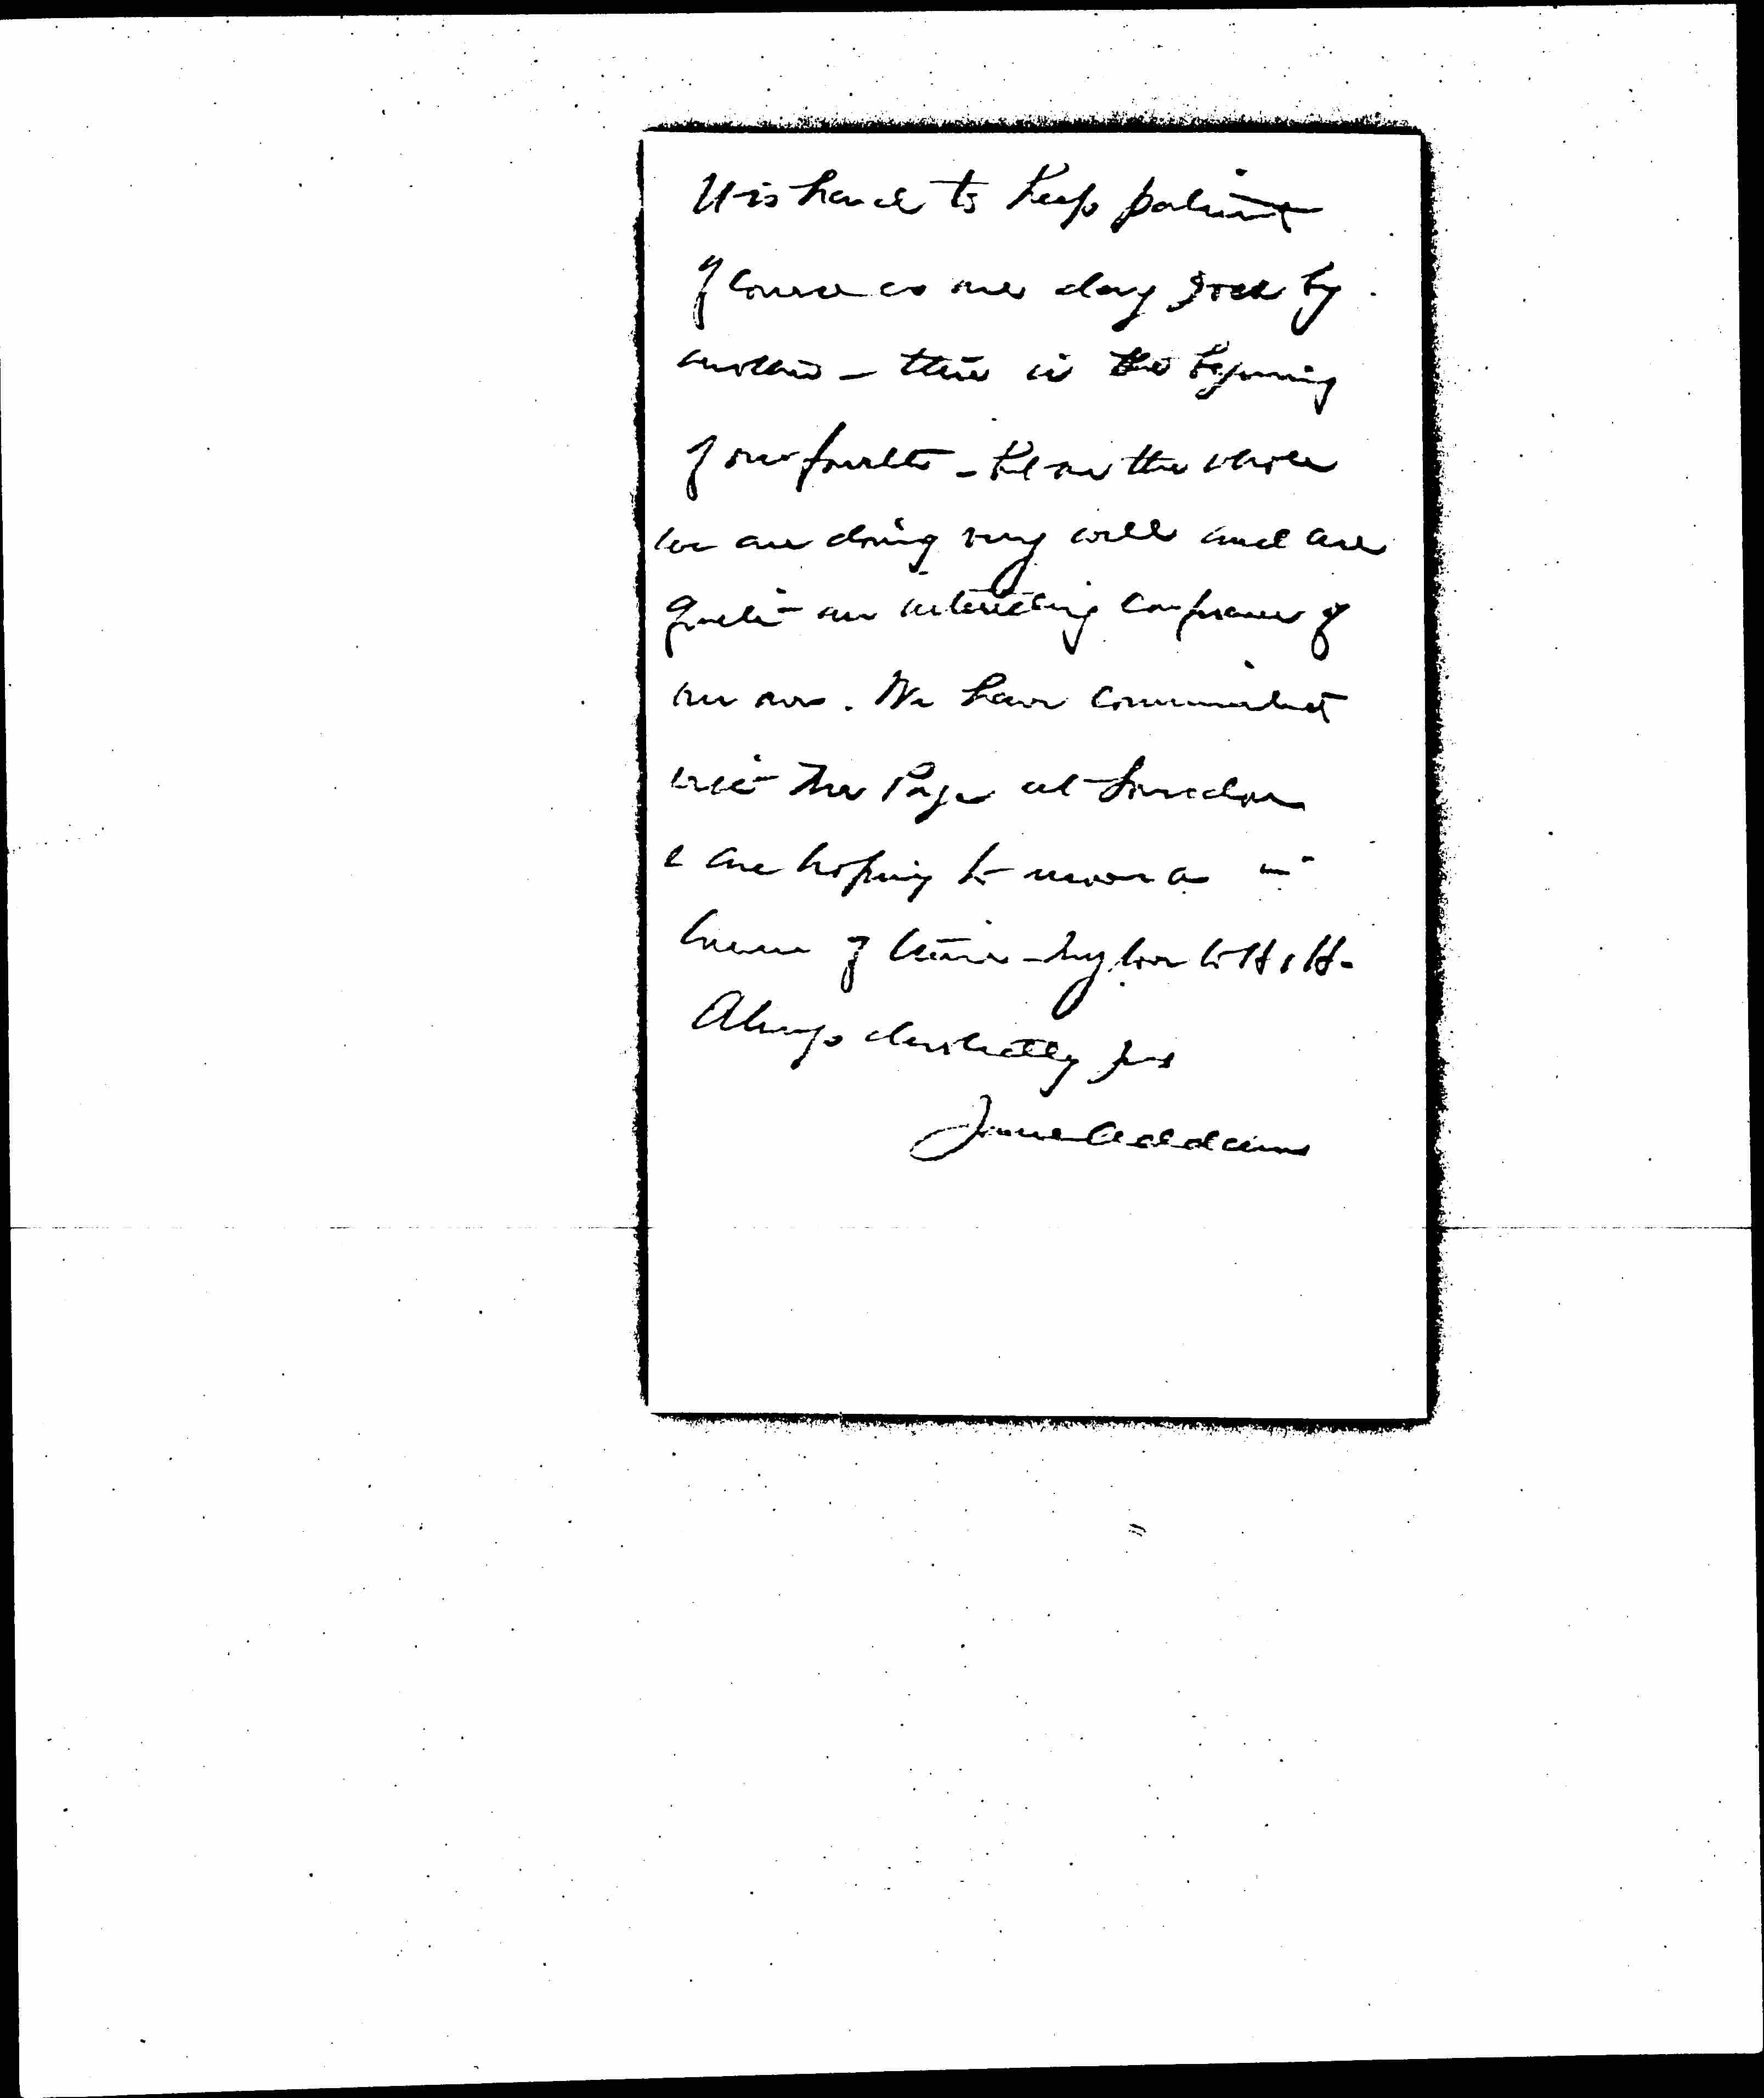 It is hard to keep patient
of course as one day goes by
another – this is the beginning
of our fourth – but on the whole
we are doing very well and are
quite an interesting conference of
our own. We have communicated
with Mr Page at London
& are hoping to move on in
course of time – My love to H. H –
Always devotedly yrs
Jane Addams